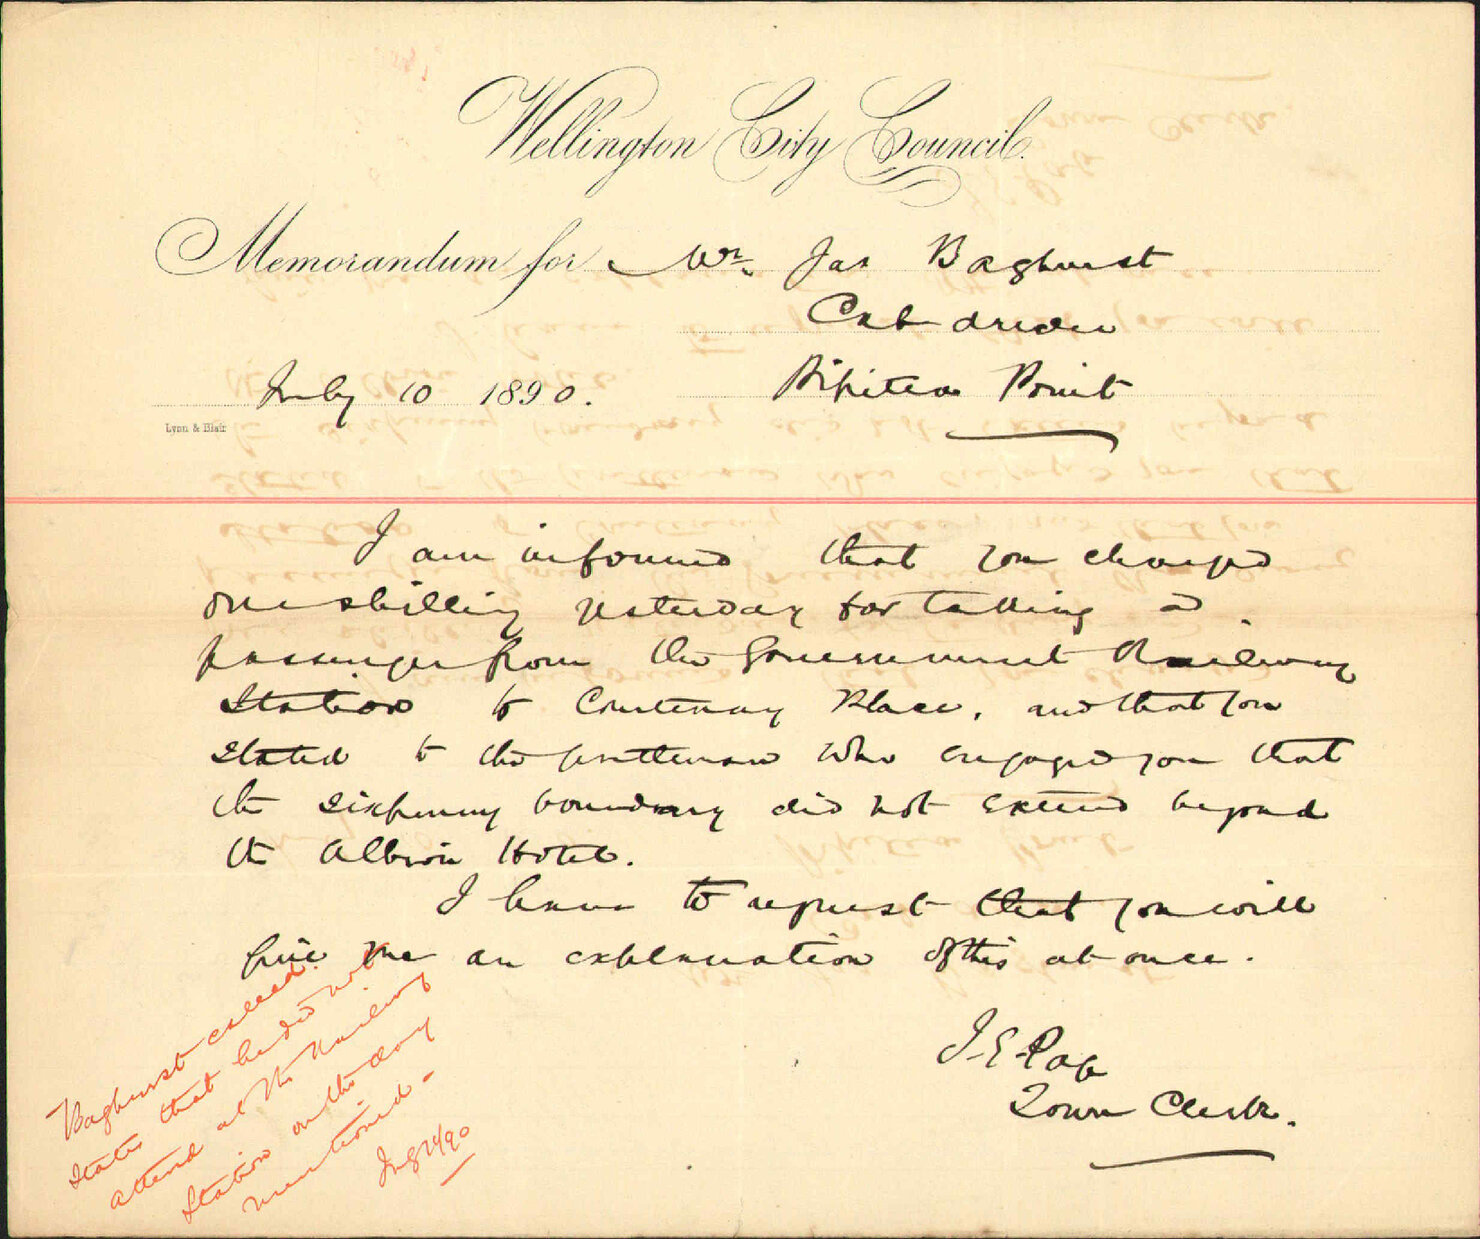 Wellington City Council.
Memorandum for Mr. Jas Baghurst
Cab driver
July 10 1890. Pipitea Point
Lyon & Blair
I am informed that you charged
one shilling yesterday for taking a
passenger from the Government Railway
Station to Courtenay Place, and that you
stated to the gentleman who engaged you that
the sixpenny boundary did not extend beyond
the Albion Hotel.
I have to request that you will
give me an explanation of this at once.
J. E. Page
Town Clerk.
Baghurst called.
States that he did not
attend at the Railway
Station on the day
mentioned -